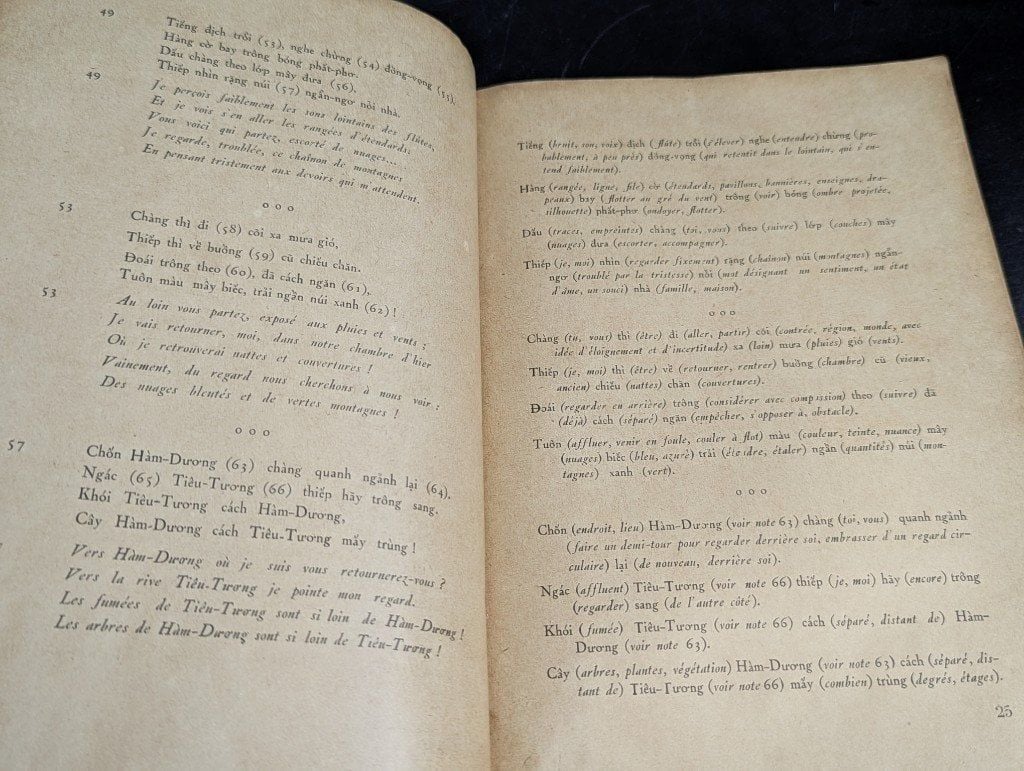 49
Tiếng địch trổi (53), nghe chừng (54) đồng-vọng (55),
Hàng cờ bay trông bóng phất-phơ.
Dấu chàng theo lớp mây đưa (56).
Thiếp nhìn rặng núi (57) ngẩn-ngơ nỗi nhà.
49
Je perçois faiblement les sons lointains des flûtes,
Et je vois s'en aller les rangées d'étendards.
Vous voici qui partez, escorté de nuages...
Je regarde, troublée, ce chaînon de montagnes
En pensant tristement aux devoirs qui m'attendent.
o o o
53
Chàng thì đi (58) cõi xa mưa gió,
Thiếp thì về buồng (59) cũ chiếu chăn.
Đoái trông theo (60), đã cách ngăn (61),
Tuôn màu mây biếc, trải ngần núi xanh (62) !
53
Au loin vous partez, exposé aux pluies et vents ;
Je vais retourner, moi, dans notre chambre d'hier
Où je retrouverai nattes et couvertures !
Vainement, du regard nous cherchons à nous voir :
Des nuages bleutés et de vertes montagnes !
o o o
57
Chốn Hàm-Dương (63) chàng quanh ngảnh lại (64).
Ngác (65) Tiêu-Tương (66) thiếp hãy trông sang.
Khói Tiêu-Tương cách Hàm-Dương,
Cây Hàm-Dương cách Tiêu-Tương mấy trùng !
Vers Hàm-Dương où je suis vous retournerez-vous ?
Vers la rive Tiêu-Tương je pointe mon regard.
Les fumées de Tiêu-Tương sont si loin de Hàm-Dương !
Les arbres de Hàm-Dương sont si loin de Tiêu-Tương !
Tiếng (bruit, son, voix) địch (flûte) trổi (s'élever) nghe (entendre) chừng (pro-
bablement, à peu près) đồng-vọng (qui retentit dans le lointain, qui s'en-
tend faiblement).
Hàng (rangée, ligne, file) cờ (étendards, pavillons, bannières, enseignes, dra-
peaux) bay (flotter au gré du vent) trông (voir) bóng (ombre projetée,
silhouette) phất-phơ (ondoyer, flotter).
Dấu (traces, empreintes) chàng (toi, vous) theo (suivre) lớp (couches) mây
(nuages) đưa (escorter, accompagner).
Thiếp (je, moi) nhìn (regarder fixement) rặng (chaînon) núi (montagnes) ngẩn-
ngơ (troublé par la tristesse) nỗi (mot désignant un sentiment, un état
d'âme, un souci) nhà (famille, maison).
o o o
Chàng (tu, vous) thì (être) đi (aller, partir) cõi (contrée, région, monde, avec
idée d'éloignement et d'incertitude) xa (loin) mưa (pluies) gió (vents).
Thiếp (je, moi) thì (être) về (retourner, rentrer) buồng (chambre) cũ (vieux,
ancien) chiếu (nattes) chăn (couvertures).
Đoái (regarder en arrière) trông (considérer avec compassion) theo (suivre) đã
(déjà) cách (séparé) ngăn (empêcher, s'opposer à, obstacle).
Tuôn (affluer, venir en foule, couler à flot) màu (couleur, teinte, nuance) mây
(nuages) biếc (bleu, azuré) trải (étendre, étaler) ngần (quantités) núi (mon-
tagnes) xanh (vert).
o o o
Chốn (endroit, lieu) Hàm-Dương (voir note 63) chàng (toi, vous) quanh ngành
(faire un demi-tour pour regarder derrière soi, embrasser d'un regard cir-
culaire) lại (de nouveau, derrière soi).
Ngác (affluent) Tiêu-Tương (voir note 66) thiếp (je, moi) hãy (encore) trông
(regarder) sang (de l'autre côté).
Khói (fumée) Tiêu-Tương (voir note 66) cách (séparé, distant de) Hàm-
Dương (voir note 63).
Cây (arbres, plantes, végétation) Hàm-Dương (voir note 63) cách (séparé, dis-
tant de) Tiêu-Tương (voir note 66) mấy (combien) trùng (degrés, étages).
25